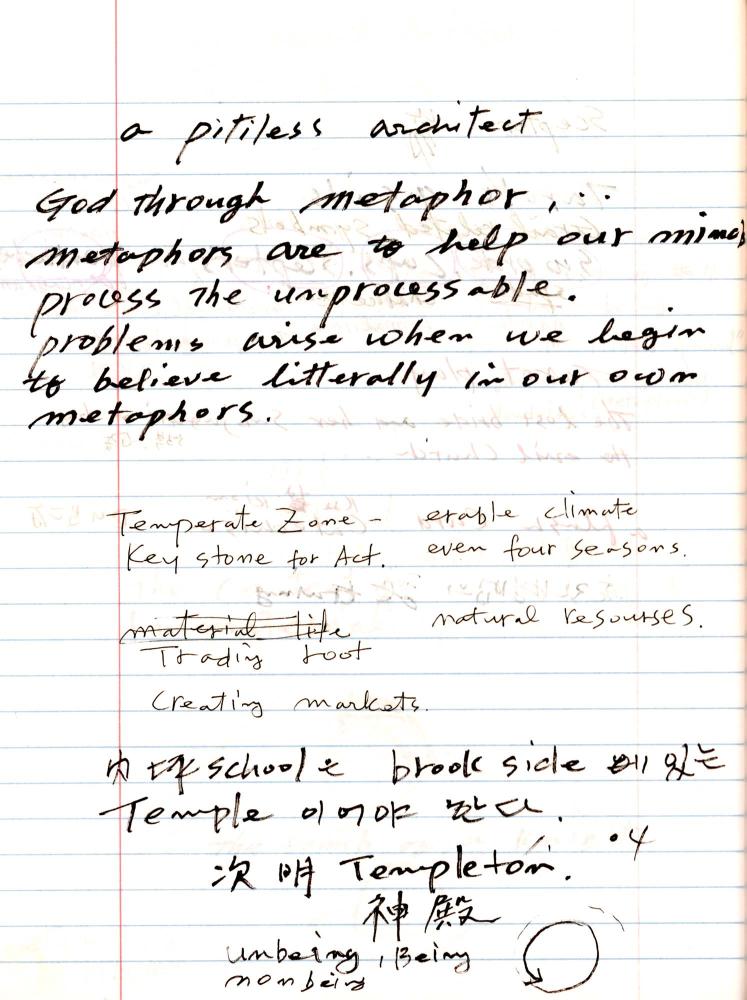 a pitiless architect
God through metaphor, ...
metaphors are to help our minds
process the unprocessable.
problems arise when we begin
to believe litterally in our own
metaphors.
Temperate Zone - erable climate
Key stone for Act. even four seasons.
material life natural resourses.
Trading root
Creating markets.
内坪 school은 brook side에 있는
Temple 이어야 한다.
次明 Templeton. .4
神殿
unbeing, Being
nonbeing